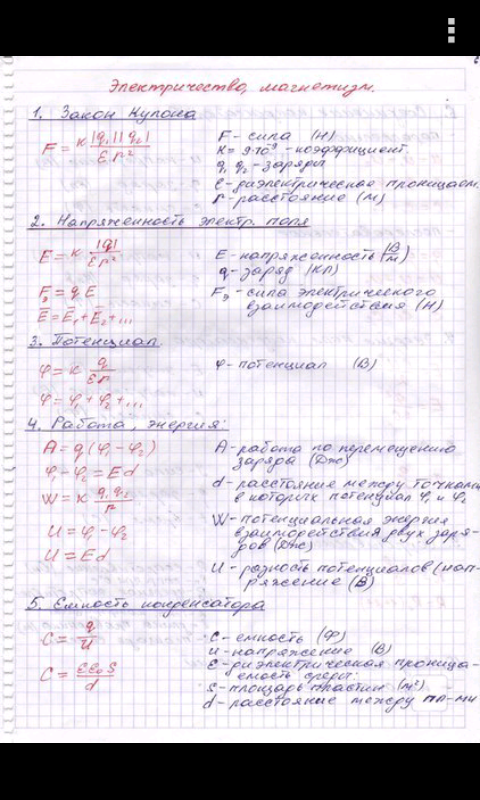 Электричество, магнетизм.
1. Закон Кулона
F = к |q₁| |q₂| / ε r²
F - сила (Н)
К = 9·10⁻⁹ - коэффициент.
q₁ q₂ - заряды
ε - диэлектрическая проницаем.
r - расстояние (м)
2. Напряженность электр. поля
E = к |q| / ε r²
E - напряженность (В/м)
q - заряд (Кл)
Fэ = q E
Fэ - сила электрического
взаимодействия (Н)
E̅ = E̅₁ + E̅₂ + ...
3. Потенциал.
φ = к q / ε r
φ - потенциал (В)
φ = φ₁ + φ₂ + ...
4. Работа, энергия:
A = q (φ₁ - φ₂)
A - работа по перемещению
заряда (Дж)
φ₁ - φ₂ = Ed
d - расстояние между точками
в которых потенциал φ₁ и φ₂
W = к q₁ q₂ / r
W - потенциальная энергия
взаимодействия двух заря-
дов (Дж)
U = φ₁ - φ₂
U = Ed
U - разность потенциалов (нап-
ряжение (В)
5. Емкость конденсатора
C = q / U
C - емкость (Ф)
U - напряжение (В)
C = ε ε₀ S / d
ε - диэлектрическая проница-
емость среды:
S - площадь пластин (м²)
d - расстояние между пл-ми